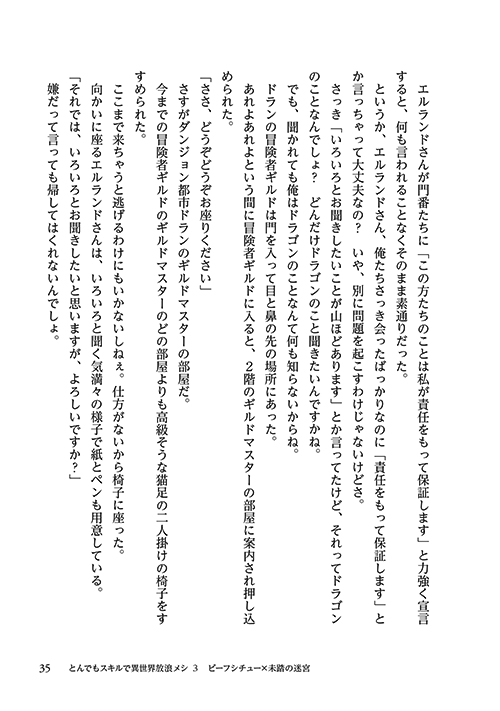 エルランドさんが門番たちに「この方たちのことは私が責任をもって保証します」と力強く宣言
すると、何も言われることなくそのまま素通りだった。
というか、エルランドさん、俺たちさっき会ったばっかりなのに「責任をもって保証します」と
か言っちゃって大丈夫なの？　いや、別に問題を起こすわけじゃないけどさ。
さっき「いろいろとお聞きしたいことが山ほどあります」とか言ってたけど、それってドラゴン
のことなんでしょ？　どんだけドラゴンのこと聞きたいんですかね。
でも、聞かれても俺はドラゴンのことなんて何も知らないからね。
ドランの冒険者ギルドは門を入って目と鼻の先の場所にあった。
あれよあれよという間に冒険者ギルドに入ると、２階のギルドマスターの部屋に案内され押し込
められた。
「ささ、どうぞどうぞお座りください」
さすがダンジョン都市ドランのギルドマスターの部屋だ。
今までの冒険者ギルドのギルドマスターのどの部屋よりも高級そうな猫足の二人掛けの椅子をす
すめられた。
ここまで来ちゃうと逃げるわけにもいかないしねぇ。仕方がないから椅子に座った。
向かいに座るエルランドさんは、いろいろと聞く気満々の様子で紙とペンも用意している。
「それでは、いろいろとお聞きしたいと思いますが、よろしいですか？」
嫌だって言っても帰してはくれないんでしょ。
35　とんでもスキルで異世界放浪メシ 3　ビーフシチュー×未踏の迷宮